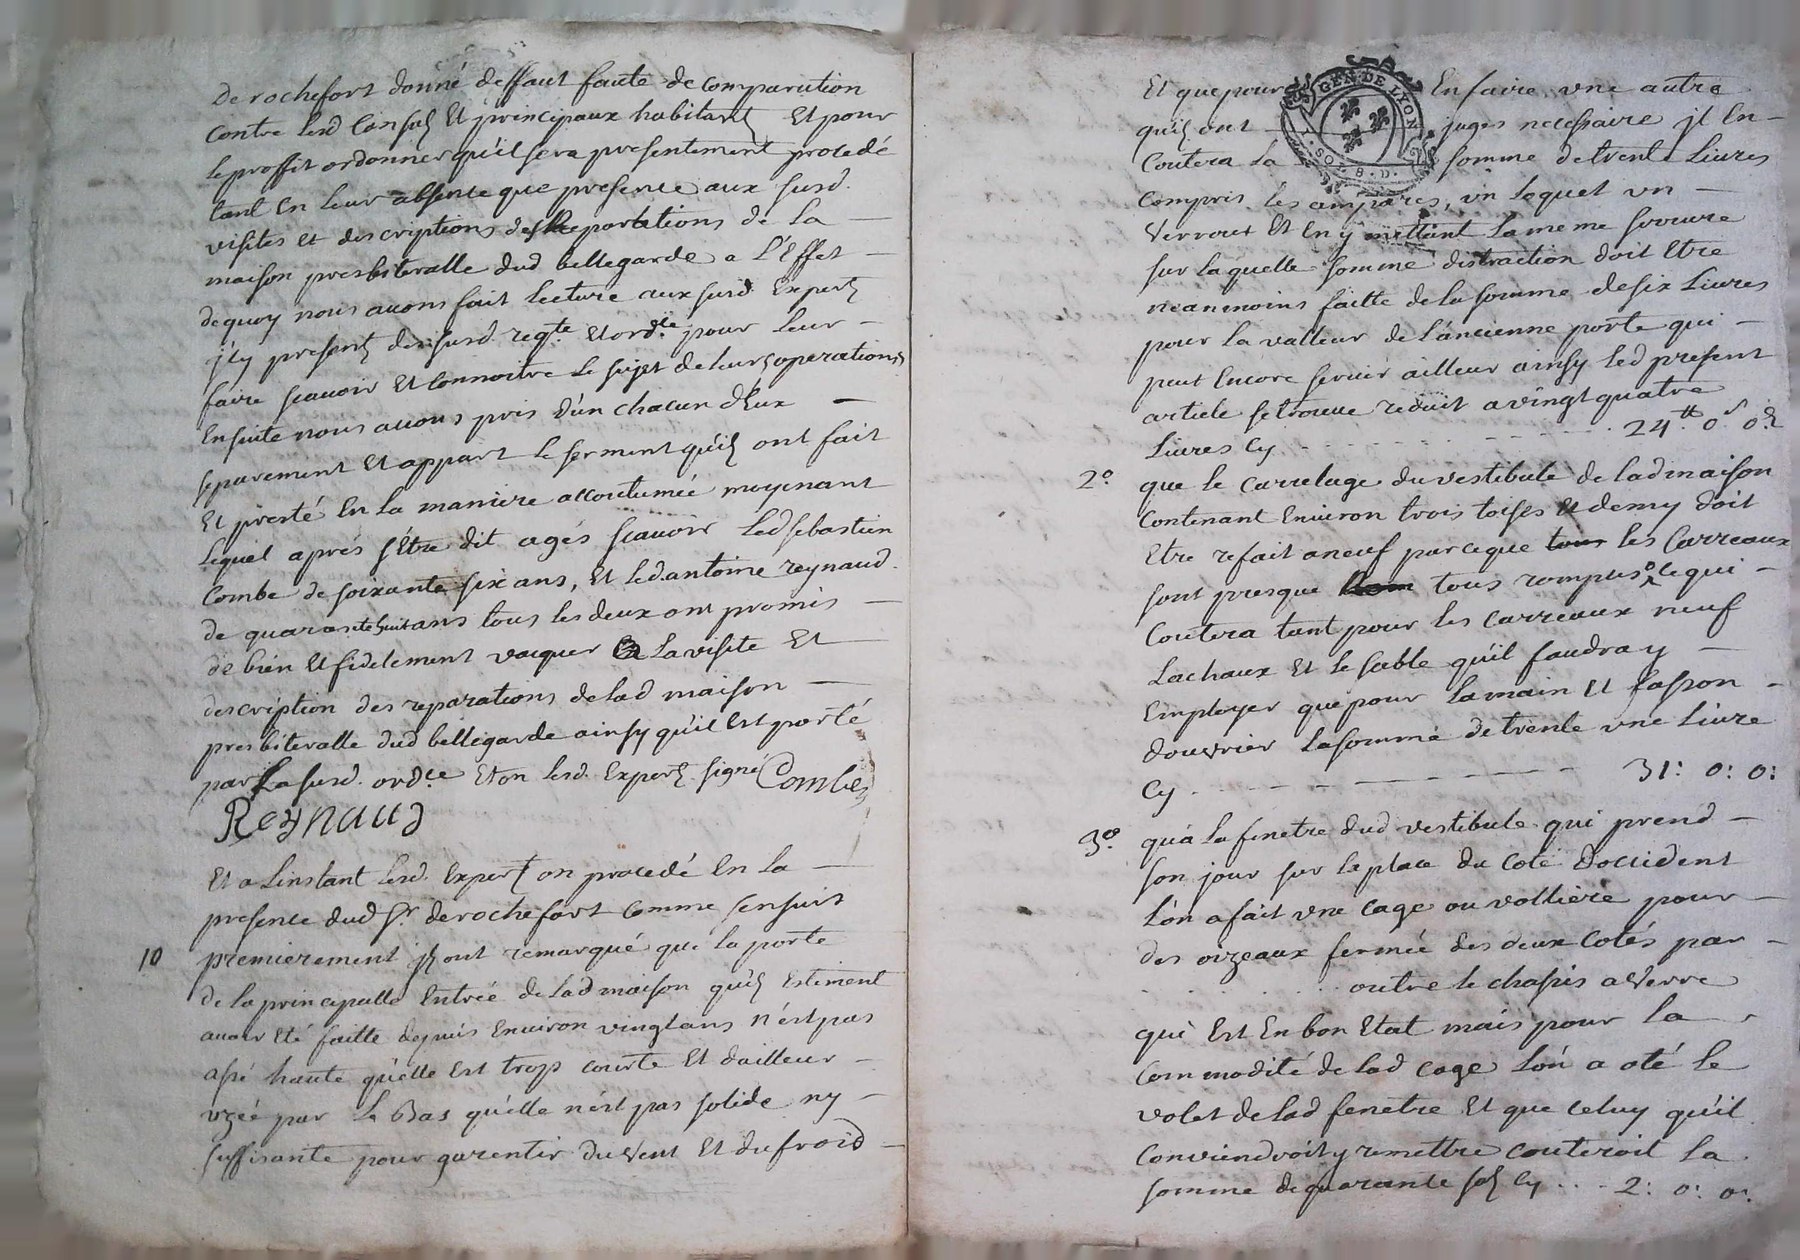 De rochefort donné deffaut faute de comparution
contre lesd Consuls Et principaux habitants Et pour
le proffit ordonner qu'il sera presentement procedé
tant en leur absence que presence aux susd.
visites et descriptions des Reparations de la
maison presbiteralle dud bellegarde a L'Effet
de quoy nous auons fait lecture aux susd. Experts
j'cy presents des susd. reqte. et ordce. pour leur
faire scauoir Et connoitre le sujet de leurs operations
Ensuite nous auons pris d'un chacun d'Eux
separement Et appart le serment qu'ils ont fait
Et presté En La maniere accoutumée moyenant
Lequel aprés s'Etre dit agés scauoir Led sebastien
Combe de soixante six ans, Et led antoine reynaud.
de quarante huit ans tous les deux ont promis
de bien Et fidelement vacquer a La visite Et
description des reparations de lad maison
presbiteralle dud bellegarde ainsy qu'il Est porté
par La susd. ordce. Et on lesd. Experts signé Combe
Reynaud
Et a Linstant lesd. Experts on procedé En la
presence dud Sr. de rochefort comme s'ensuit
10 premierement jls ont remarqué que la porte
de la principalle Entrée de lad maison qu'ils Estiment
auoir Eté faitte depuis Enuiron vingt ans n'est pas
assé haute qu'elle Est trop courte Et d'ailleur
vzée par le Bas qu'elle n'est pas solide ny
suffisante pour garentir du vent Et du froid
Et que pour En faire vne autre
qu'ils ont jugés necessaire jl En
Coutera La somme de trente Liures
Compris les empares, vn Loquet vn
Verrouet Et En y mettant La meme serrure
sur laquelle somme distraction doit Etre
neanmoins faitte de la somme de six Liures
pour la valleur de l'ancienne porte qui
peut Encore seruir ailleur ainsy led present
article se trouue reduit a vingt quatre
Liures Cy 24tt 0s 0d
2o. que le carrelage du vestibule de lad maison
Contenant Enuiron trois toises et demy doit
Etre refait a neuf parce que tous les Carreaux
sont presque tous rompus ce qui
Coutera tant pour les carreaux neuf
La chaux Et le sable qu'il faudra y
Employer que pour La main Et fasson
d'ouvrier La somme de trente vne Liure
Cy 31: 0: 0:
3o. qu'a La fenetre dud vestibule qui prend
son jour sur la place du coté d'occident
L'on a fait vne cage ou volliere pour
des oizeaux fermée des deux Cotés par
outre le chassis a Verre
qui Est En bon Etat mais pour la
Commodité de lad cage L'on a oté le
volet de lad fenetre Et que celuy qu'il
Conviendroit y remettre couteroit La
somme de quarante sols Cy 2: 0: 0:
GEN. DE LYON